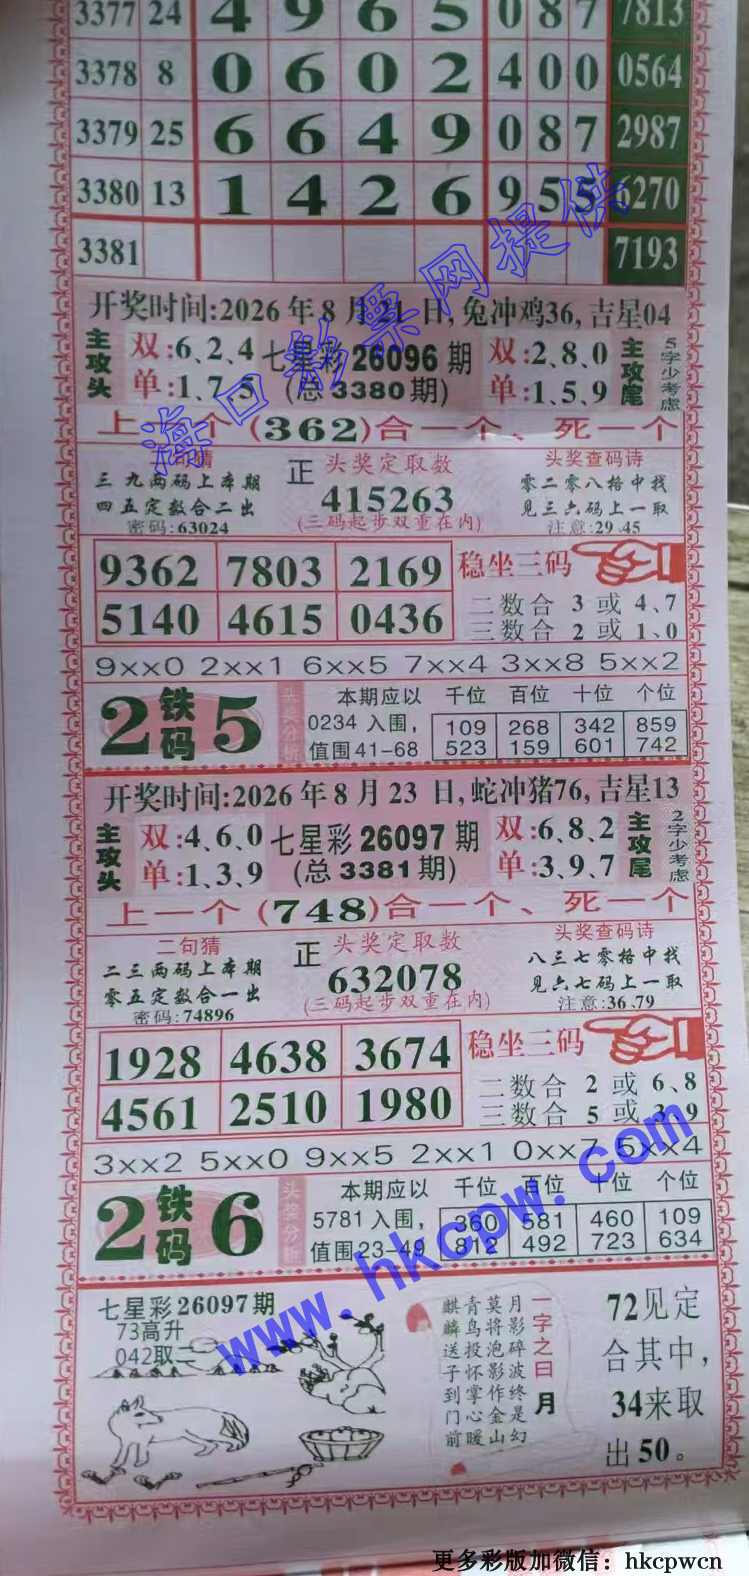 3377 24 4 9 6 5 0 8 7 7813
3378 8 0 6 0 2 4 0 0 0564
3379 25 6 6 4 9 0 8 7 2987
3380 13 1 4 2 6 9 5 5 6270
3381 7193
海口彩票网提供
开奖时间:2026年8月21日,兔冲鸡36,吉星04
主攻头 双:6、2、4 七星彩26096期 双:2、8、0 主攻尾 5字少考虑
单:1、7、5 (总3380期) 单:1、5、9
上一个(362)合一个、死一个
二句猜 正 头奖定取数 头奖查码诗
三九两码上本期 415263 零二零八格中找
四五定数合二出 (三码起步双重在内) 见三六码上一取
密码:63024 注意:29.45
9362 7803 2169 稳坐三码
5140 4615 0436 二数合 3 或 4、7
三数合 2 或 1、0
9××0 2××1 6××5 7××4 3××8 5××2
2铁码5 头奖分析 本期应以 千位 百位 十位 个位
0234入围, 109 268 342 859
值围41-68 523 159 601 742
开奖时间:2026年8月23日,蛇冲猪76,吉星13
主攻头 双:4、6、0 七星彩26097期 双:6、8、2 主攻尾 2字少考虑
单:1、3、9 (总3381期) 单:3、9、7
上一个(748)合一个、死一个
二句猜 正 头奖定取数 头奖查码诗
二三两码上本期 632078 八三七零格中找
零五定数合一出 (三码起步双重在内) 见六七码上一取
密码:74896 注意:36.79
1928 4638 3674 稳坐三码
4561 2510 1980 二数合 2 或 6、8
三数合 5 或 3、9
3××2 5××0 9××5 2××1 0××7 5××4
2铁码6 头奖分析 本期应以 千位 百位 十位 个位
5781入围, 360 581 460 109
值围23-49 812 492 723 634
www.hkcpw.com
七星彩26097期
73高升
042取二
一字之曰 月
月影碎波终是幻
莫将泡影作金山
青鸟投怀掌心暖
麒麟送子到门前
72见定
合其中,
34来取
出50。
更多彩版加微信：hkcpwcn